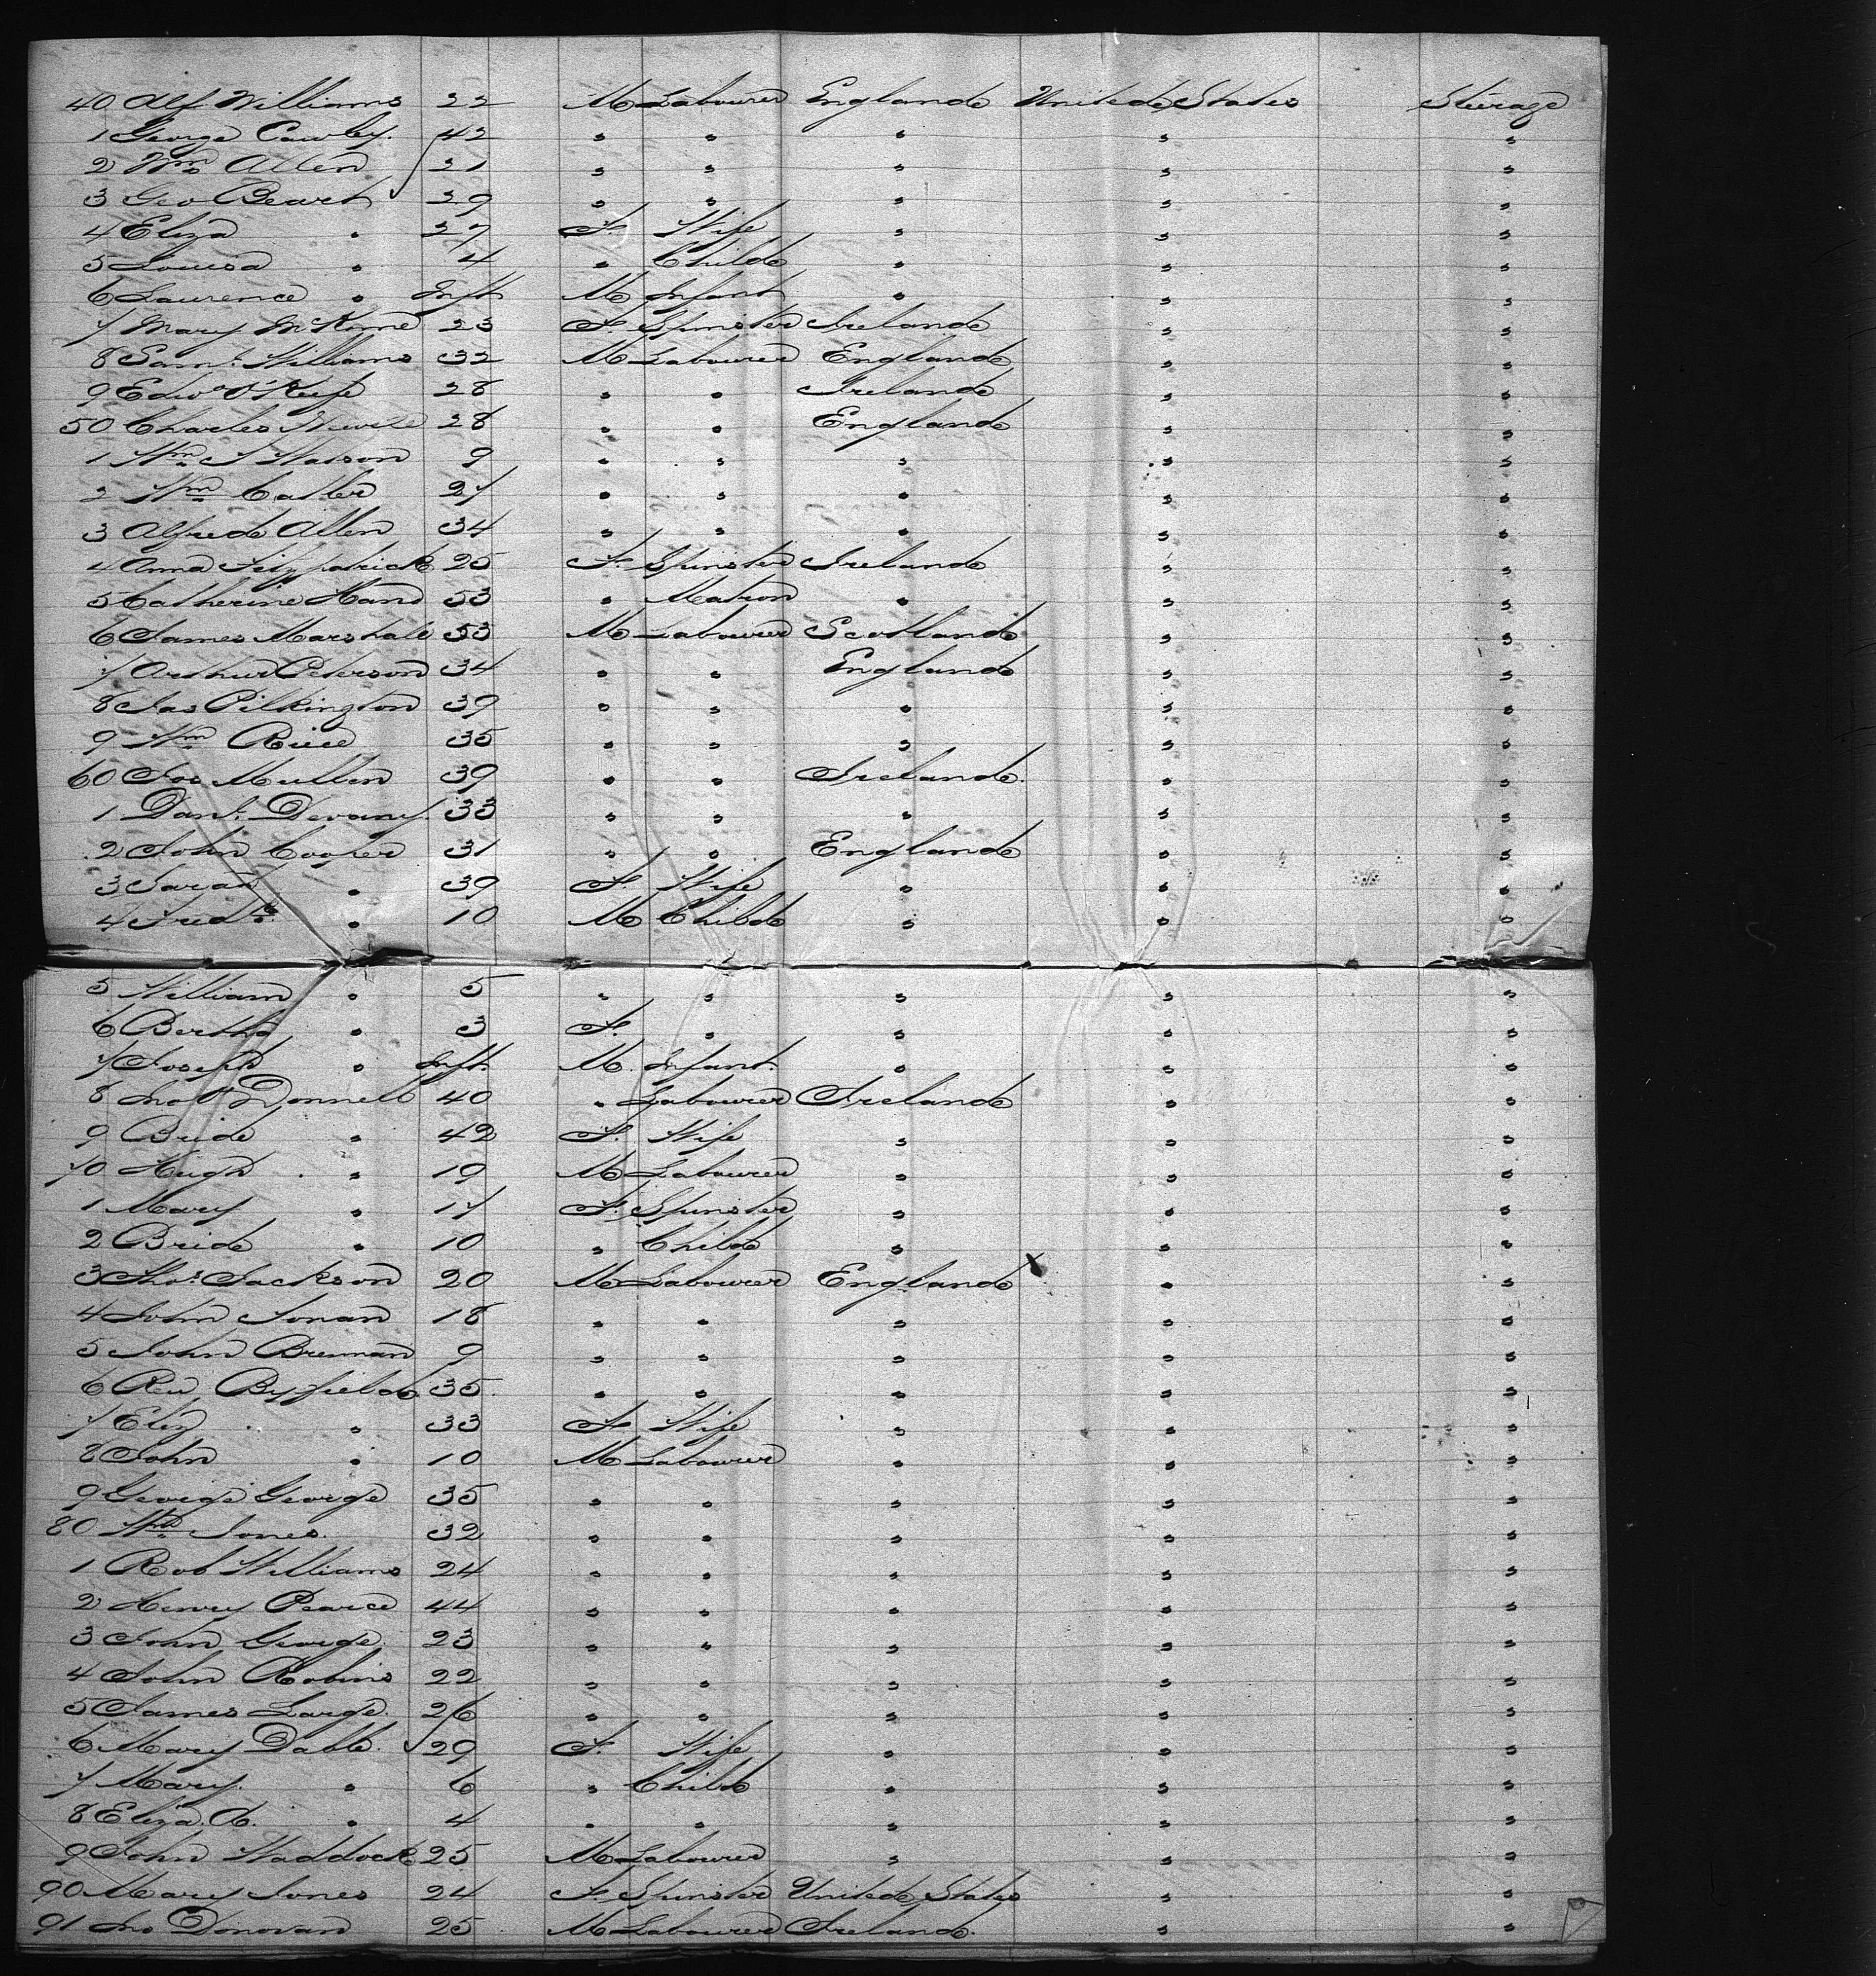 40 Alf Williams 22 M Labourer England United States Steerage
1 George Cawley 42 " " " " "
2 Wm Allen 21 " " " " "
3 Geo Beart 29 " " " " "
4 Eliza " 27 F Wife " " "
5 Louisa " 4 " Child " " "
6 Laurence " Inft M Infant " " "
7 Mary 23 F Spinster Ireland " "
8 Saml. Williams 32 M Labourer England " "
9 Edwd O'Keefe 28 " " Ireland " "
50 Charles 28 " " England " "
1 Wm J Watson 9 " " " " "
2 Wm 27 " " " " "
3 Alfred Allen 34 " " " " "
4 Anna Fitzpatrick 25 F Spinster Ireland " "
5 Catherine Hand 53 " Matron " " "
6 James Marshall 53 M Labourer Scotland " "
7 Arthur Peterson 34 " " England " "
8 Jas Pilkington 39 " " " " "
9 Wm 35 " " " " "
60 Jos Mullen 39 " " Ireland " "
1 Danl. Devany 33 " " " " "
2 John Cooper 31 " " England " "
3 Sarah " 39 F Wife " " "
4 Fredk. " 10 M Child " " "
5 William " 5 " " " " "
6 Bertha " 3 F " " " "
7 Joseph " Inft. M. Infant. " " "
8 Jno O'Donnell 40 " Labourer Ireland " "
9 Bride " 42 F. Wife " " "
70 Hugh " 19 M Labourer " " "
1 Mary " 17 F. Spinster " " "
2 Bride " 10 " Child " " "
3 Thos. Jackson 20 M Labourer England " "
4 John 18 " " " " "
5 John Brennan 9 " " " " "
6 Byfield 35 " " " " "
7 Eliz " 33 F Wife " " "
8 John " 10 M Labourer " " "
9 George George 35 " " " " "
80 Wm Jones 32 " " " " "
1 Rob Williams 24 " " " " "
2 Henry Pearce 44 " " " " "
3 John George 23 " " " " "
4 John Robins 22 " " " " "
5 James Large 26 " " " " "
6 Mary Dabb. 29 F. Wife " " "
7 Mary " 6 " Child " " "
8 Eliza. A. " 4 " " " " "
9 John Haddock 25 M Labourer " " "
90 Mary Jones 24 F. Spinster United States " "
91 Jno Donovan 25 M Labourer Ireland. " "